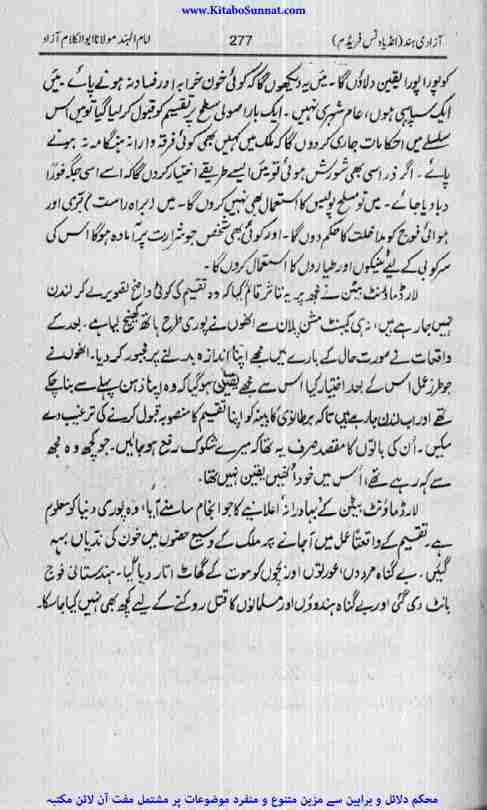 www.KitaboSunnat.com
آزادی ہند (انڈیا ونس فریڈم) 277 امام الہند مولانا ابوالکلام آزاد
کو پورا پورا یقین دلاؤں گا۔ میں یہ دیکھوں گا کہ کوئی خون خرابہ اور فساد نہ ہونے پائے۔ میں
ایک سپاہی ہوں، عام شہری نہیں۔ ایک بار اصولی سطح پر تقسیم کو قبول کر لیا گیا تو میں اس
سلسلے میں احکامات جاری کر دوں گا کہ ملک میں کہیں بھی کوئی فرقہ وارانہ ہنگامہ نہ ہونے
پائے۔ اگر ذرا سی بھی شورش ہوئی تو میں ایسے طریقے اختیار کروں گا کہ اسے اسی جگہ فوراً
دبا دیا جائے۔ میں تو مسلح پولیس کا استعمال بھی نہیں کروں گا۔ میں (براہ راست) بری اور
ہوائی فوج کو مداخلت کا حکم دوں گا۔ اور کوئی بھی شخص جو شرارت پر آمادہ ہوگا اس کی
سرکوبی کے لیے ٹینکوں اور طیاروں کا استعمال کروں گا۔
لارڈ ماؤنٹ بیٹن نے مجھ پر یہ تاثر قائم کیا کہ وہ تقسیم کی کوئی واضح تصویر لے کر لندن
نہیں جا رہے ہیں، نہ ہی کیبنٹ مشن پلان سے انھوں نے پوری طرح ہاتھ کھینچ لیا ہے۔ بعد کے
واقعات نے صورت حال کے بارے میں مجھے اپنا اندازہ بدلنے پر مجبور کر دیا۔ انھوں نے
جو طرز عمل اس کے بعد اختیار کیا اس سے مجھے یقین ہو گیا کہ وہ اپنا ذہن پہلے سے بنا چکے
تھے اور اب لندن جا رہے ہیں تاکہ برطانوی کابینہ کو اپنا تقسیم کا منصوبہ قبول کرنے کی ترغیب دے
سکیں۔ اُن کی باتوں کا مقصد صرف یہ تھا کہ میرے شکوک رفع ہو جائیں۔ جو کچھ وہ مجھ
سے کہہ رہے تھے، اُس میں خود اُنھیں یقین نہیں تھا۔
لارڈ ماؤنٹ بیٹن کے بہادرانہ اعلانیے کا جو انجام سامنے آیا، وہ پوری دنیا کو معلوم
ہے۔ تقسیم کے واقعتاً عمل میں آ جانے پر ملک کے وسیع حصوں میں خون کی ندیاں بہہ
گئیں۔ بے گناہ مردوں، عورتوں اور بچوں کو موت کے گھاٹ اتار دیا گیا۔ ہندستانی فوج
بانٹ دی گئی اور بے گناہ ہندوؤں اور مسلمانوں کا قتل روکنے کے لیے کچھ بھی نہیں کیا جا سکا۔
محکم دلائل و براہین سے مزین متنوع و منفرد موضوعات پر مشتمل مفت آن لائن مکتبہ